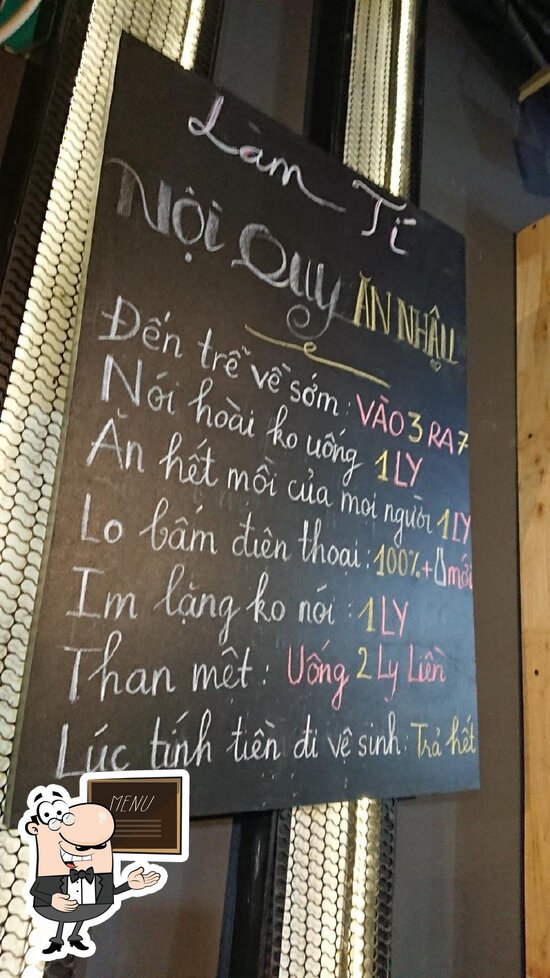 Làm Tí
Nội Quy ĂN NHẬU
Đến trễ về sớm: VÀO 3 RA 7
Nói hoài ko uống 1 LY
Ăn hết mồi của mọi người 1 LY
Lo bấm điên thoại: 100% + mới
Im lặng ko nói: 1 LY
Than mêt: Uống 2 Ly Liền
Lúc tính tiền đi vệ sinh: Trả hết
MENU